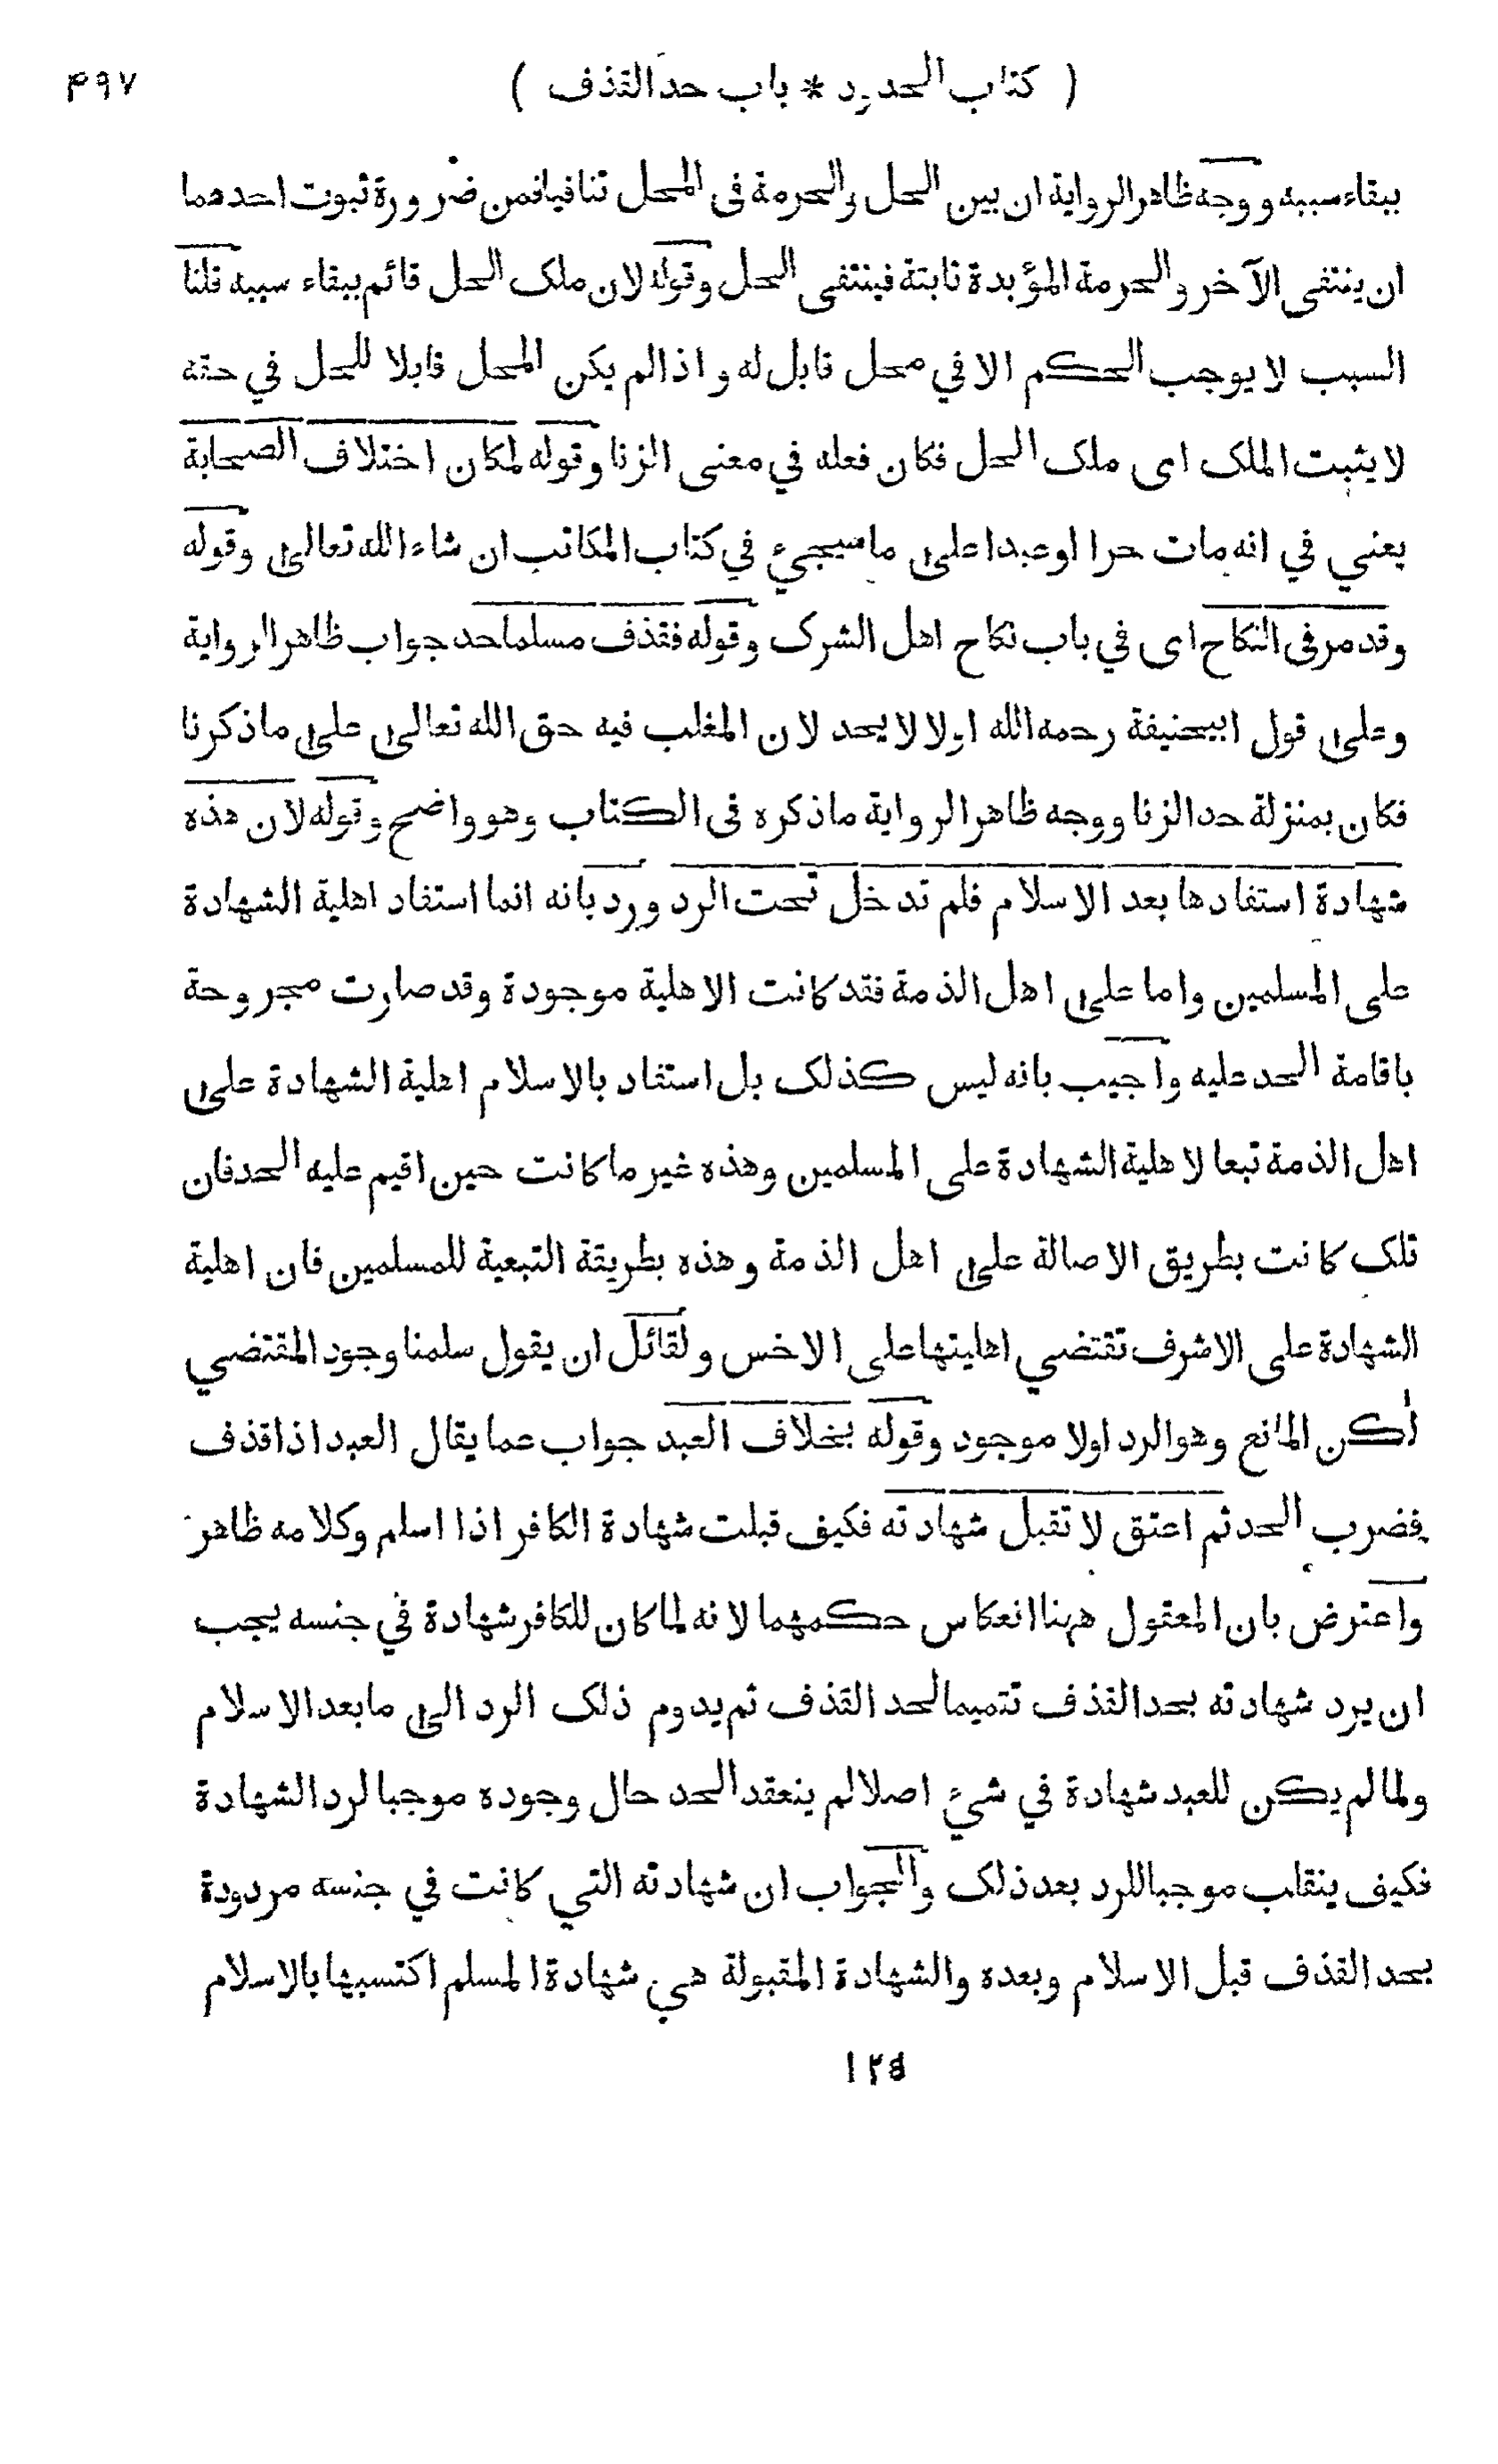 ( كتاب الحدود * باب حد القذف ) ۴۹۷
ببقاء سببه ووجه ظاهر الرواية ان بين الحل والحرمة فى المحل تنافيا فمن ضرورة ثبوت احدهما
ان ينتفى الآخر والحرمة المؤبدة ثابتة فينتفى الحل وقوله لان ملك الحل قائم ببقاء سببه قلنا
السبب لا يوجب الحكم الا في محل قابل له واذا لم يكن المحل قابلا للحل في حقه
لا يثبت الملك اى ملك الحل فكان فعله في معنى الزنا وقوله لمكان اختلاف الصحابة
يعني في انه مات حرا او عبدا على ما سيجيء في كتاب المكاتب ان شاء الله تعالى وقوله
وقد مر فى النكاح اى في باب نكاح اهل الشرك وقوله فقذف مسلما حد جواب ظاهر الرواية
وعلى قول ابيحنيفة رحمه الله اولا لا يحد لان المغلب فيه حق الله تعالى على ما ذكرنا
فكان بمنزلة حد الزنا ووجه ظاهر الرواية ما ذكره فى الكتاب وهو واضح وقوله لان هذه
شهادة استفادها بعد الاسلام فلم تدخل تحت الرد ورد بانه انما استفاد اهلية الشهادة
على المسلمين واما على اهل الذمة فقد كانت الاهلية موجودة وقد صارت مجروحة
باقامة الحد عليه واجيب بانه ليس كذلك بل استفاد بالاسلام اهلية الشهادة على
اهل الذمة تبعا لاهلية الشهادة على المسلمين وهذه غير ما كانت حين اقيم عليه الحد فان
تلك كانت بطريق الاصالة على اهل الذمة وهذه بطريقة التبعية للمسلمين فان اهلية
الشهادة على الاشرف تقتضي اهليتها على الاخس ولقائل ان يقول سلمنا وجود المقتضي
لكن المانع وهو الرد اولا موجود وقوله بخلاف العبد جواب عما يقال العبد اذا قذف
فضرب الحد ثم اعتق لا تقبل شهادته فكيف قبلت شهادة الكافر اذا اسلم وكلامه ظاهر
واعترض بان المعقول ههنا انعكاس حكمهما لانه لما كان للكافر شهادة في جنسه يجب
ان يرد شهادته بحد القذف تتميما لحد القذف ثم يدوم ذلك الرد الى ما بعد الاسلام
ولما لم يكن للعبد شهادة في شيء اصلا لم ينعقد الحد حال وجوده موجبا لرد الشهادة
فكيف ينقلب موجبا للرد بعد ذلك والجواب ان شهادته التي كانت في جنسه مردودة
بحد القذف قبل الاسلام وبعده والشهادة المقبولة هي شهادة المسلم اكتسبها بالاسلام
۱۲۵